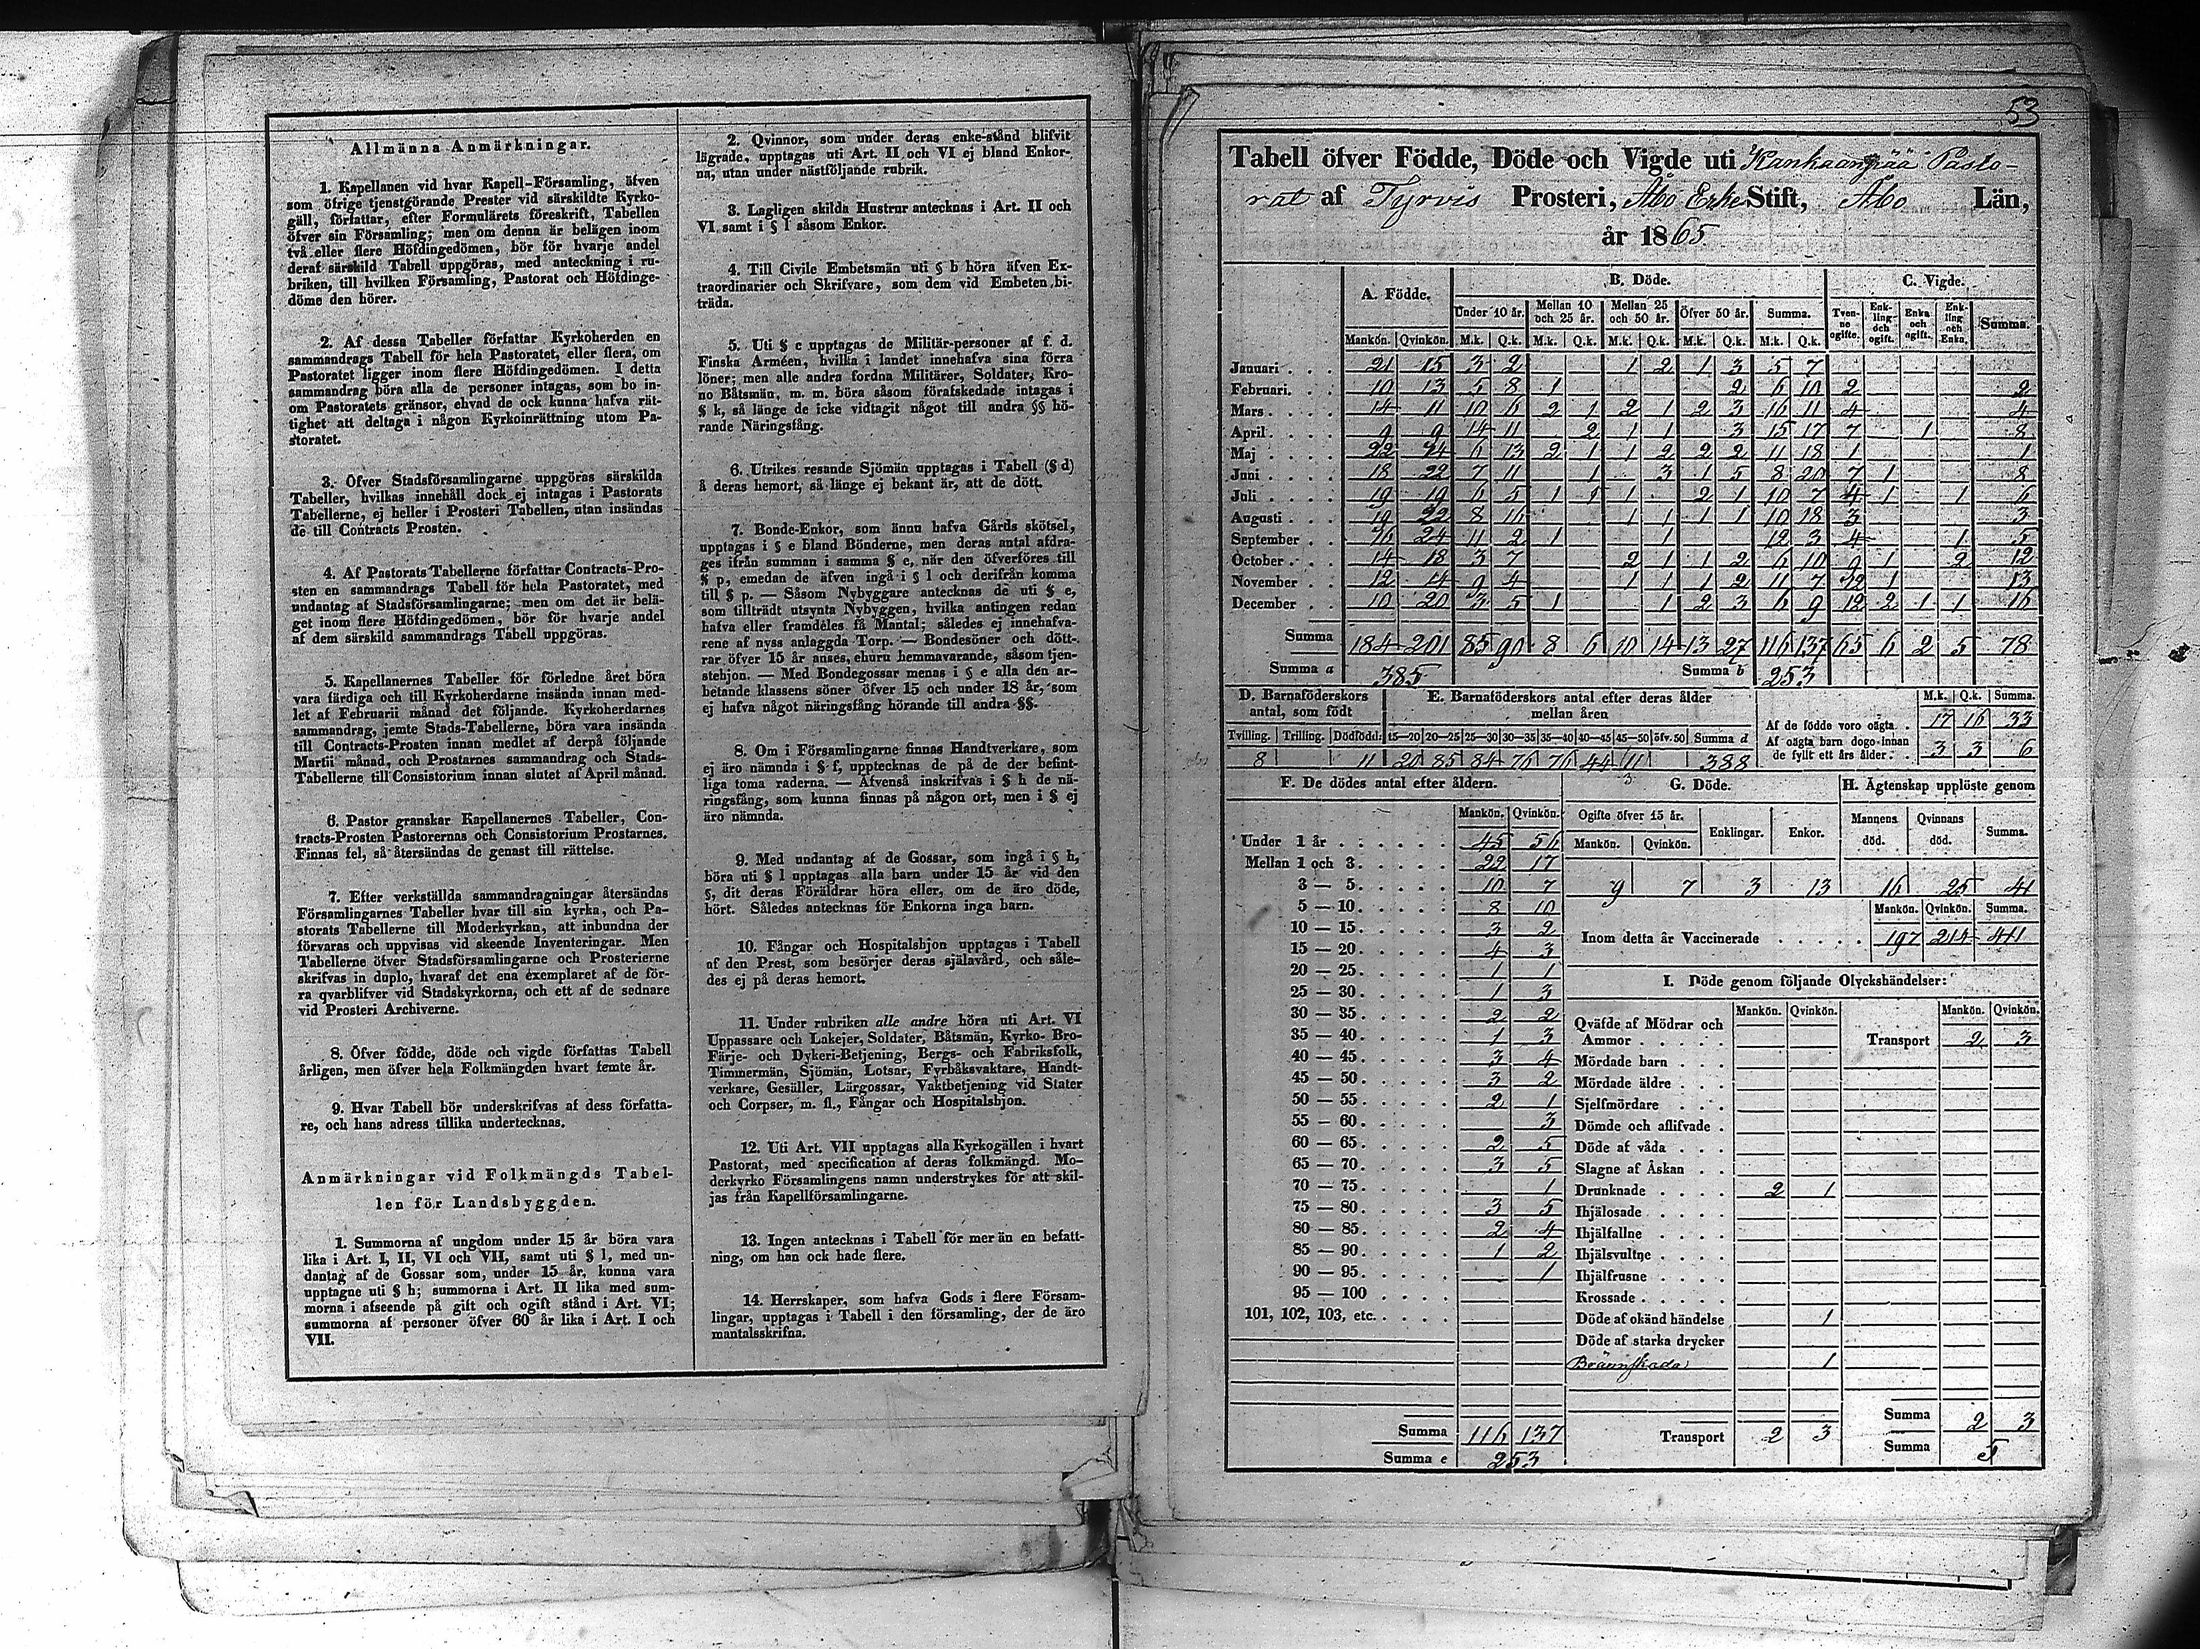 Allmänna Anmärkningar.
1. Kapellanen vid hvar Kapell-Församling, äfven
som öfrige tjenstgörande Prester vid särskildte Kyrko-
gäll, författar, efter Formulärets föreskrift, Tabellen
öfver sin Församling; men om denna är belägen inom
två eller flere Höfdingedömen, bör för hvarje andel
deraf särskild Tabell uppgöras, med anteckning i ru-
briken, till hvilken Församling, Pastorat och Höfdinge-
döme den hörer.
2. Af dessa Tabeller författar Kyrkoherden en
sammandrags Tabell för hela Pastoratet, eller flera, om
Pastoratet ligger inom flere Höfdingedömen. I detta
sammandrag böra alla de personer intagas, som bo in-
om Pastoratets gränsor, ehvad de ock kunna hafva rät-
tighet att deltaga i någon Kyrkoinrättning utom Pa-
storatet.
3. Öfver Stadsförsamlingarne uppgöras särskilda
Tabeller, hvilkas innehåll dock ej intagas i Pastorats
Tabellerne, ej heller i Prosteri Tabellen, utan insändas
de till Contracts Prosten.
4. Af Pastorats Tabellerne författar Contracts-Pro-
sten en sammandrags Tabell för hela Pastoratet, med
undantag af Stadsförsamlingarne; men om det är belä-
get inom flere Höfdingedömen, bör för hvarje andel
af dem särskild sammandrags Tabell uppgöras.
5. Kapellanernes Tabeller för förledne året böra
vara färdiga och till Kyrkoherdarne insända innan med-
let af Februarii månad det följande. Kyrkoherdarnes
sammandrag, jemte Stads-Tabellerne, böra vara insända
till Contracts-Prosten innan medlet af derpå följande
Martii månad, och Prostarnes sammandrag och Stads-
Tabellerne till Consistorium innan slutet af April månad.
6. Pastor granskar Kapellanernes Tabeller, Con-
tracts-Prosten Pastorernas och Consistorium Prostarnes.
Finnas fel, så återsändas de genast till rättelse.
7. Efter verkställda sammandragningar återsändas
Församlingarnes Tabeller hvar till sin kyrka, och Pa-
storats Tabellerne till Moderkyrkan, att inbundna der
förvaras och uppvisas vid skeende Inventeringar. Men
Tabellerne öfver Stadsförsamlingarne och Prosterierne
skrifvas in duplo, hvaraf det ena exemplaret af de för-
ra qvarblifver vid Stadskyrkorna, och ett af de sednare
vid Prosteri Archiverne.
8. Öfver födde, döde och vigde författas Tabell
årligen, men öfver hela Folkmängden hvart femte år.
9. Hvar Tabell bör underskrifvas af dess författa-
re, och hans adress tillika undertecknas.
Anmärkningar vid Folkmängds Tabel-
len för Landsbyggden.
1. Summorna af ungdom under 15 år böra vara
lika i Art. I, II, VI och VII, samt uti § l, med un-
dantag af de Gossar som, under 15 år, kunna vara
upptagne uti § h; summorna i Art. II lika med sum-
morna i afseende på gift och ogift stånd i Art. VI;
summorna af personer öfver 60 år lika i Art. I och
VII.
2. Qvinnor, som under deras enke-stånd blifvit
lägrade, upptagas uti Art. II och VI ej bland Enkor-
na, utan under nästföljande rubrik.
3. Lagligen skilda Hustrur antecknas i Art. II och
VI samt i § l såsom Enkor.
4. Till Civile Embetsmän uti § b höra äfven Ex-
traordinarier och Skrifvare, som dem vid Embeten bi-
träda.
5. Uti § c upptagas de Militär-personer af f. d.
Finska Arméen, hvilka i landet innehafva sina förra
löner; men alle andra fordna Militärer, Soldater, Kro-
no Båtsmän, m. m. böra såsom förafskedade intagas i
§ k, så länge de icke vidtagit något till andra §§ hö-
rande Näringsfång.
6. Utrikes resande Sjömän upptagas i Tabell (§ d)
å deras hemort, så länge ej bekant är, att de dött.
7. Bonde-Enkor, som ännu hafva Gårds skötsel,
upptagas i § e bland Bönderne, men deras antal afdra-
ges ifrån summan i samma § e, när den öfverföres till
§ p, emedan de äfven ingå i § l och derifrån komma
till § p. — Såsom Nybyggare antecknas de uti § e,
som tillträdt utsynta Nybyggen, hvilka antingen redan
hafva eller framdeles få Mantal; således ej innehafva-
rene af nyss anlaggda Torp. — Bondesöner och dött-
rar öfver 15 år anses, ehuru hemmavarande, såsom tjen-
stehjon. — Med Bondegossar menas i § e alla den ar-
betande klassens söner öfver 15 och under 18 år, som
ej hafva något näringsfång hörande till andra §§.
8. Om i Församlingarne finnas Handtverkare, som
ej äro nämnda i § f, upptecknas de på de der befint-
liga toma raderna. — Äfvenså inskrifvas i § h de nä-
ringsfång, som kunna finnas på någon ort, men i § ej
äro nämnda.
9. Med undantag af de Gossar, som ingå i § h,
böra uti § l upptagas alla barn under 15 år vid den
§, dit deras Föräldrar höra eller, om de äro döde,
hört. Således antecknas för Enkorna inga barn.
10. Fångar och Hospitalshjon upptagas i Tabell
af den Prest, som besörjer deras själavård, och såle-
des ej på deras hemort.
11. Under rubriken alle andre höra uti Art. VI
Uppassare och Lakejer, Soldater, Båtsmän, Kyrko- Bro-
Färje- och Dykeri-Betjening, Bergs- och Fabriksfolk,
Timmermän, Sjömän, Lotsar, Fyrbåksvaktare, Handt-
verkare, Gesäller, Lärgossar, Vaktbetjening vid Stater
och Corpser, m. fl., Fångar och Hospitalshjon.
12. Uti Art. VII upptagas alla Kyrkogällen i hvart
Pastorat, med specification af deras folkmängd. Mo-
derkyrko Församlingens namn understrykes för att skil-
jas från Kapellförsamlingarne.
13. Ingen antecknas i Tabell för mer än en befatt-
ning, om han ock hade flere.
14. Herrskaper, som hafva Gods i flere Försam-
lingar, upptagas i Tabell i den församling, der de äro
mantalsskrifna.
53
Tabell öfver Födde, Döde och Vigde uti Kankaanpää Pasto-
rat af Tyrvis Prosteri, Åbo Erke Stift, Åbo Län,
år 1865
A. Födde. B. Döde. C. Vigde.
Under 10 år. Mellan 10 och 25 år. Mellan 25 och 50 år. Öfver 50 år. Summa. Tven-ne ogifte. Enk-ling och ogift. Enka och ogift. Enk-ling och Enka. Summa.
Mankön. Qvinkön. M.k. Q.k. M.k. Q.k. M.k. Q.k. M.k. Q.k. M.k. Q.k.
Januari 21 15 3 2 1 2 1 3 5 7
Februari 10 13 5 8 1 2 6 10 2 2
Mars 14 11 10 6 2 1 2 1 2 3 16 11 4 4
April 9 9 14 11 2 1 1 3 15 17 7 1 8
Maj 22 24 6 13 2 1 1 2 2 2 11 18 1 1
Juni 18 22 7 11 1 3 1 5 8 20 7 1 8
Juli 19 19 6 5 1 1 1 2 1 10 7 4 1 1 6
Augusti 19 22 8 16 1 1 1 1 10 18 3 3
September 16 24 11 2 1 1 12 3 4 1 5
October 14 18 3 7 2 1 1 2 6 10 9 1 2 12
November 12 14 9 4 1 1 1 2 11 7 12 1 13
December 10 20 3 5 1 1 2 3 6 9 12 2 1 1 16
Summa 184 201 85 90 8 6 10 14 13 27 116 137 65 6 2 5 78
Summa a 385 Summa b 253
D. Barnaföderskors antal, som födt
Tvilling. Trilling. Dödfödd.
8 11
E. Barnaföderskors antal efter deras ålder
mellan åren
15—20 20—25 25—30 30—35 35—40 40—45 45—50 öfv. 50 Summa d
20 85 84 76 76 44 11 388
3
M.k. Q.k. Summa.
Af de födde voro oägta 17 16 33
Af oägta barn dogo innan
de fyllt ett års ålder 3 3 6
F. De dödes antal efter åldern.
Mankön. Qvinkön.
Under 1 år 45 56
Mellan 1 och 3 22 17
3 — 5 10 7
5 — 10 8 10
10 — 15 3 2
15 — 20 4 3
20 — 25 1 1
25 — 30 1 3
30 — 35 2 2
35 — 40 1 3
40 — 45 3 4
45 — 50 3 2
50 — 55 2 1
55 — 60 3
60 — 65 2 5
65 — 70 3 5
70 — 75 1
75 — 80 3 5
80 — 85 2 4
85 — 90 1 2
90 — 95 1
95 — 100
101, 102, 103, etc.
Summa 116 137
Summa e 253
G. Döde.
Ogifte öfver 15 år. Enklingar. Enkor.
Mankön. Qvinkön.
9 7 3 13
H. Ägtenskap upplöste genom
Mannens död. Qvinnans död. Summa.
16 25 41
Mankön. Qvinkön. Summa.
Inom detta år Vaccinerade 197 214 411
I. Döde genom följande Olyckshändelser:
Mankön. Qvinkön.
Qväfde af Mödrar och
Ammor
Mördade barn
Mördade äldre
Sjelfmördare
Dömde och aflifvade
Döde af våda
Slagne af Åskan
Drunknade 2 1
Ihjälosade
Ihjälfallne
Ihjälsvultne
Ihjälfrusne
Krossade
Döde af okänd händelse 1
Döde af starka drycker
Brännskada 1
Transport 2 3
Mankön. Qvinkön.
Transport 2 3
Summa 2 3
Summa 5